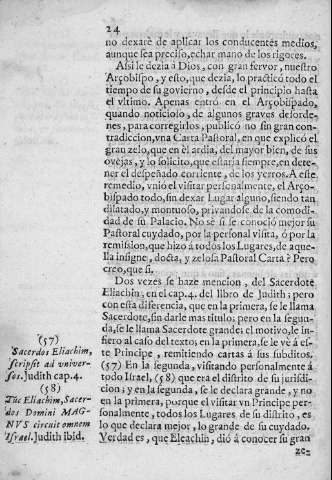 24
no dexarè de aplicar los conducentes medios,
aunque sea preciso, echar mano de los rigores.
Assi le dezia à Dios, con gran fervor, nuestro
Arçobispo, y esto, que dezia, lo practicó todo el
tiempo de su govierno, desde el principio hasta
el vltimo. Apenas entrò en el Arçobispado,
quando noticioso, de algunos graves desorde-
nes, para corregirlos, publicó no sin gran con-
tradiccion, vna Carta Pastoral, en que explicó el
gran zelo, que en èl ardia, del mayor bien, de sus
ovejas, y lo solicito, que estaria siempre, en dete-
ner el despeñado corriente, de los yerros. A este
remedio, vniò el visitar personalmente, el Arço-
bispado todo, sin dexar Lugar alguno, siendo tan
dilatado, y montuoso, privandose de la comodi-
dad de su Palacio. No sè si se conoció mejor su
Pastoral cuydado, por la personal visita, ó por la
remission, que hizo à todos los Lugares, de aque-
lla insigne, docta, y zelosa Pastoral Carta? Pero
creo, que si.
Dos vezes se haze mencion, del Sacerdote
Eliachin, en el cap. 4. del libro de Judith; pero
con esta diferencia, que en la primera, se le llama
Sacerdote, sin darle mas titulo; pero en la segun-
da, se le llama Sacerdote grande; el motivo, le in-
fiero al caso del texto; en la primera, se le vè á es-
te Principe, remitiendo cartas á sus subditos.
(57) En la segunda, visitando personalmente á
todo Israel, (58) que era el distrito de su jurisdi-
cion; y en la segunda, se le declara grande, y no
en la primera, porque el visitar vn Principe per-
sonalmente, todos los Lugares de su distrito, es
lo que declara mejor, lo grande de su cuydado.
Verdad es, que Eleachin, dió á conocer su gran
ze-
(57)
Sacerdos Eliachim,
scripsit ad univer-
sos. Judith cap. 4.
(58)
Tuc Eliachim, Sacer-
dos Domini MAG-
NVS circuit omnem
Israel. Judith ibid.